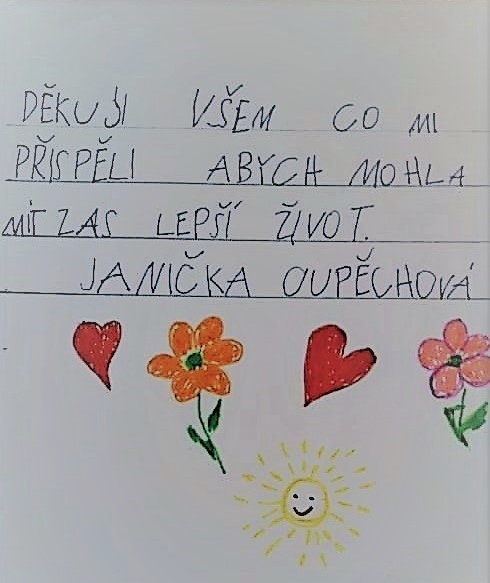 DĚKUJI VŠEM CO MI
PŘISPĚLI ABYCH MOHLA
MÍT ZAS LEPŠÍ ŽIVOT.
JANIČKA OUPĚCHOVÁ